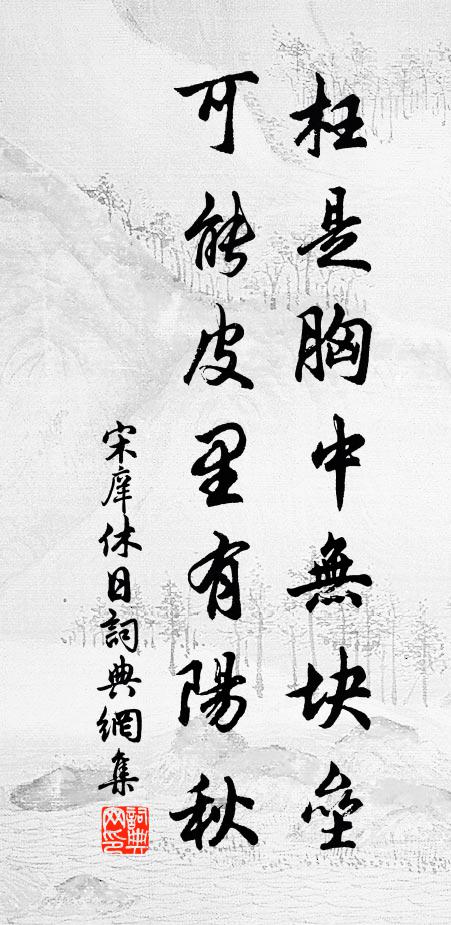 枉是胸中無块垒
可能皮里有陽秋
宋庠休日詞典網集
詞典网印